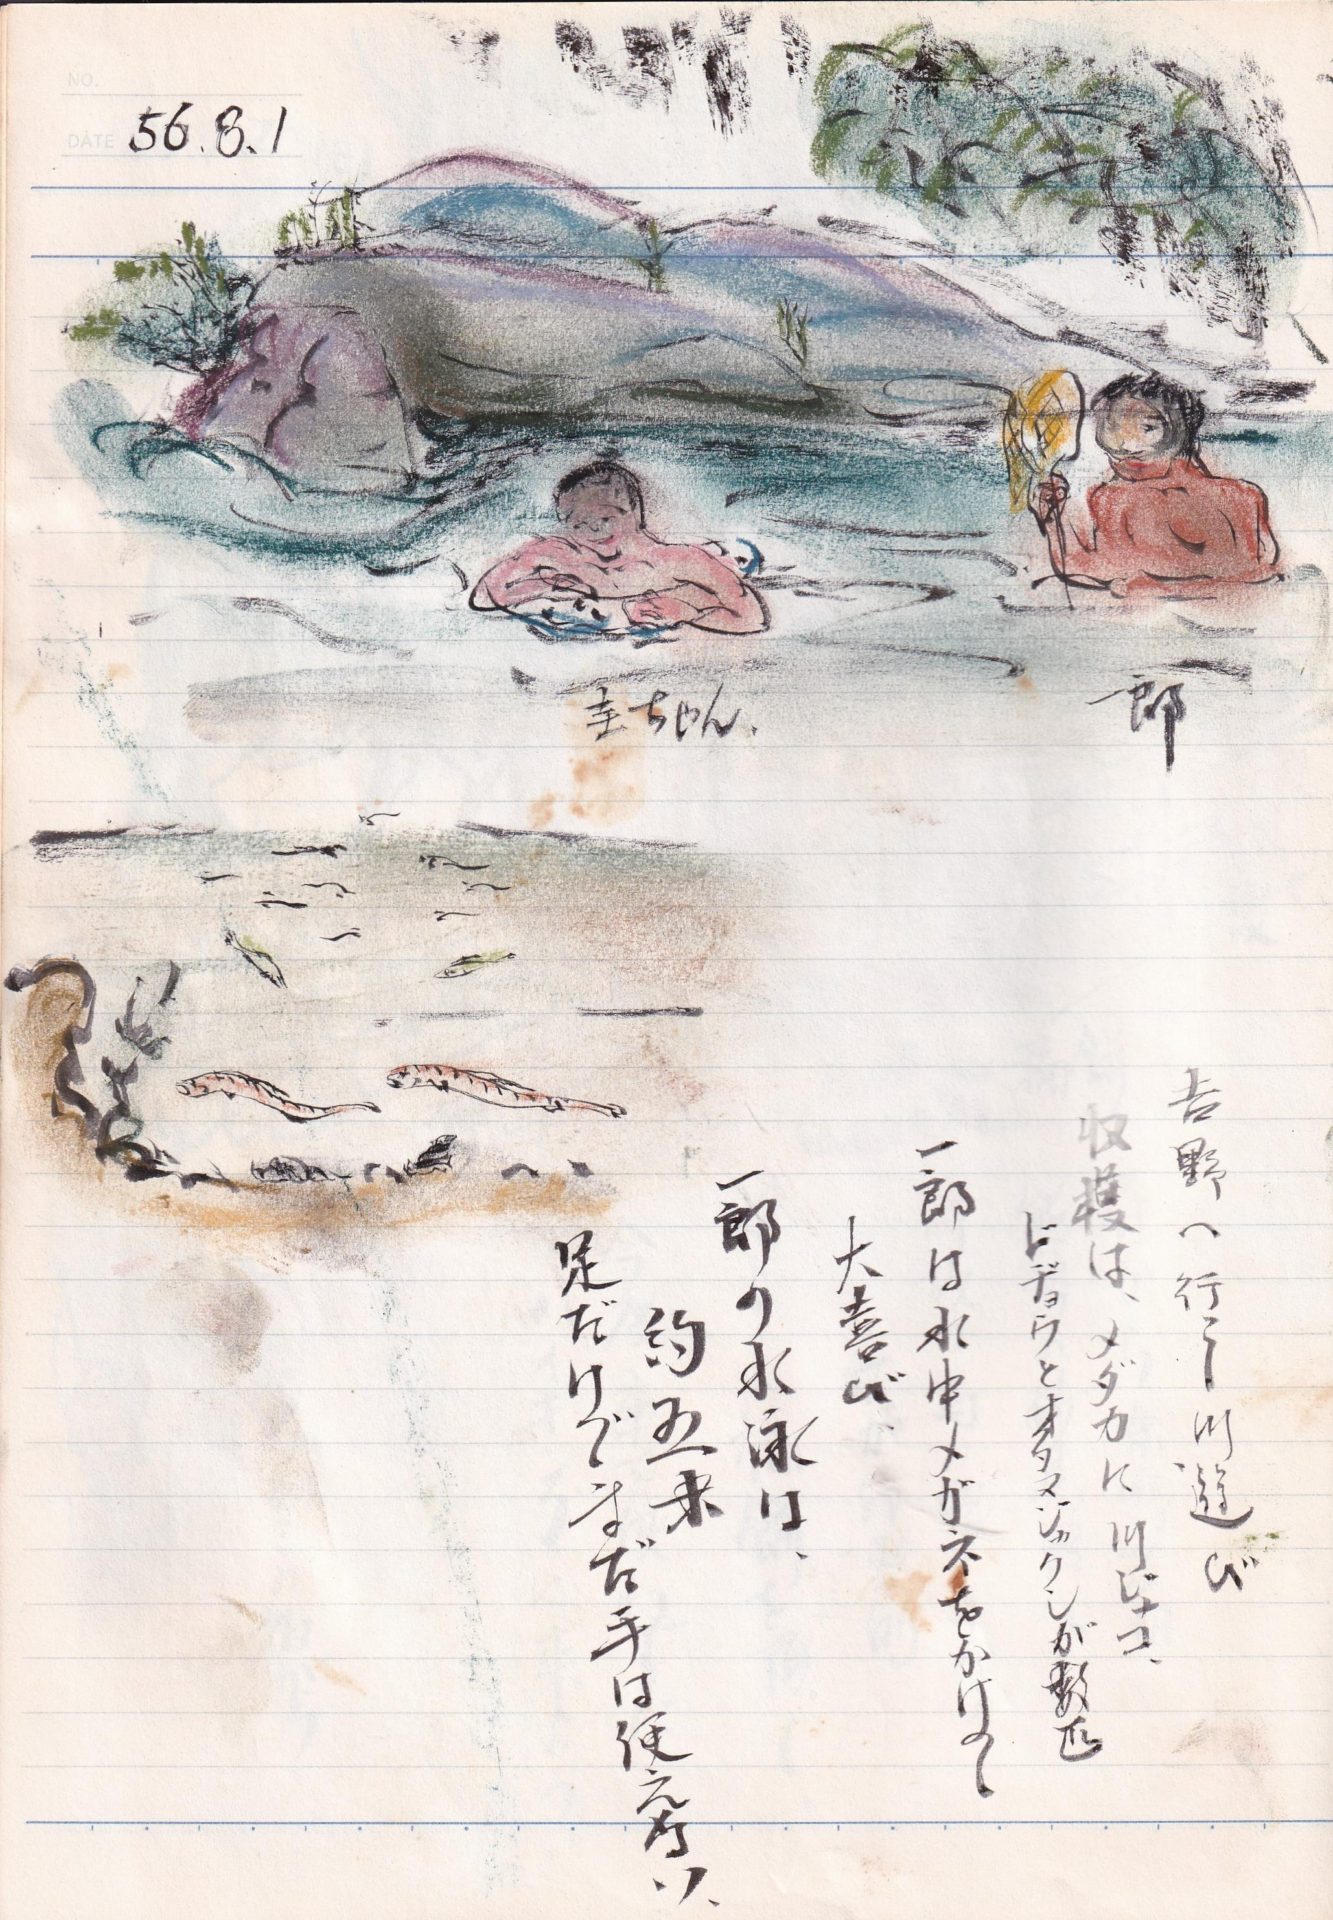 NO.
DATE 56.8.1
圭ちゃん.
一郎
吉野へ行く川遊び
収穫は、メダカに川ジャコ、
ドジョウとオタマジャクシが数匹
一郎は水中メガネをかけて
大喜び、
一郎の水泳は、
約五米
足だけでまだ手は使えない、